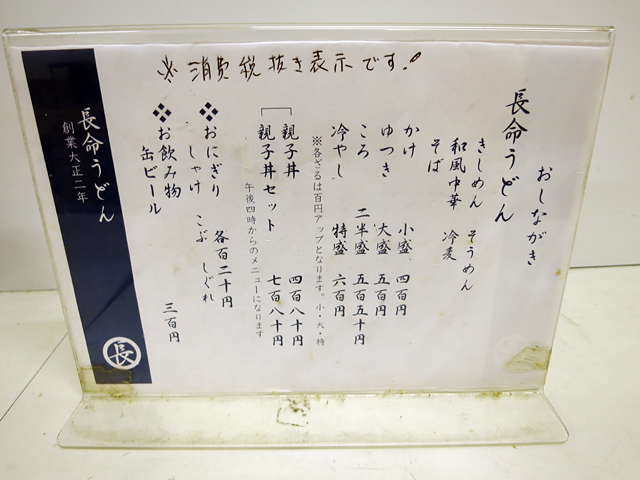 ※消費税抜き表示です!
おしながき
長命うどん
きしめん　そうめん
和風中華　冷麦
そば
かけ　小盛　四百円
ゆつき　大盛　五百円
ころ　二半盛　五百五十円
冷やし　特盛　六百円
※各ざるは百円アップとなります。小・大・特
親子丼　四百八十円
親子丼セット　七百八十円
午後四時からのメニューになります
❖おにぎり　各百二十円
しゃけ　こぶ　しぐれ
❖お飲み物
缶ビール　三百円
長命うどん
創業大正二年
長